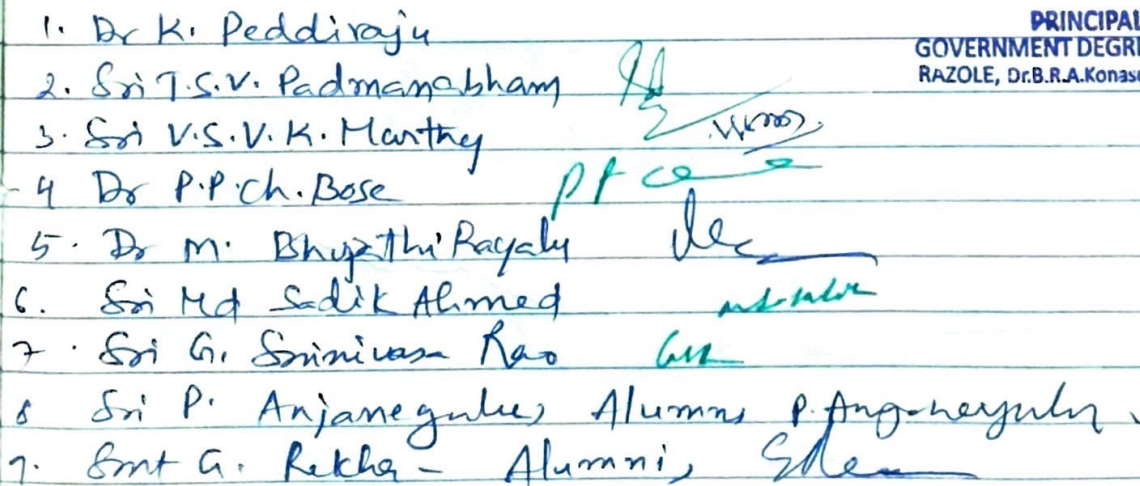 PRINCIPAL
GOVERNMENT DEGRE
RAZOLE, Dr.B.R.A.Konase
1. Dr K. Peddiraju
2. Sri T.S.V. Padmanabham
3. Sri V.S.V.K. Murthy
4 Dr P.P.Ch. Bose
5. Dr M. Bhupathi Rayalu
6. Sri Md Sadik Ahmed
7. Sri G. Srinivasa Rao
8 Sri P. Anjaneyulu, Alumni P. Anjaneyulu
9. Smt G. Rekha - Alumni,